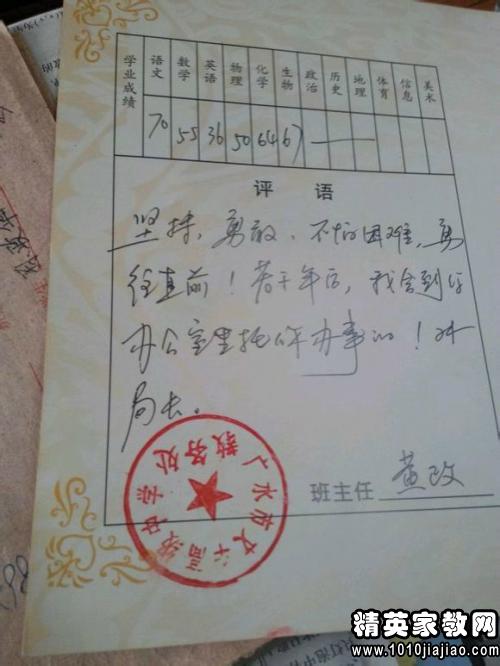 学业成绩 语文 数学 英语 物理 化学 生物 政治 历史 地理 体育 信息 美术
70 55 36 50 64 67
评 语
坚持、勇敢、不怕困难,勇
往直前!若干年后,我会到你
办公室里托你办事的!叶
局长。
班主任 黄政
广水市文华高级中学
教务处
精英家教网
www.1010jiajiao.com